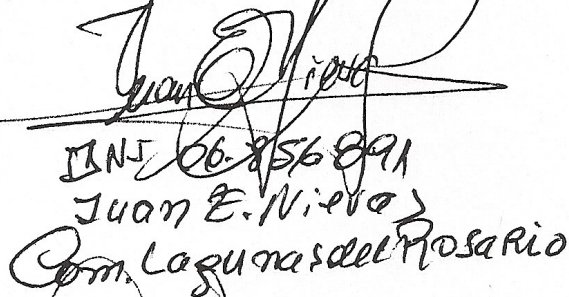 Juan E Nievas
DNI 06.856891
Juan E. Nievas
Com. Lagunas del Rosario